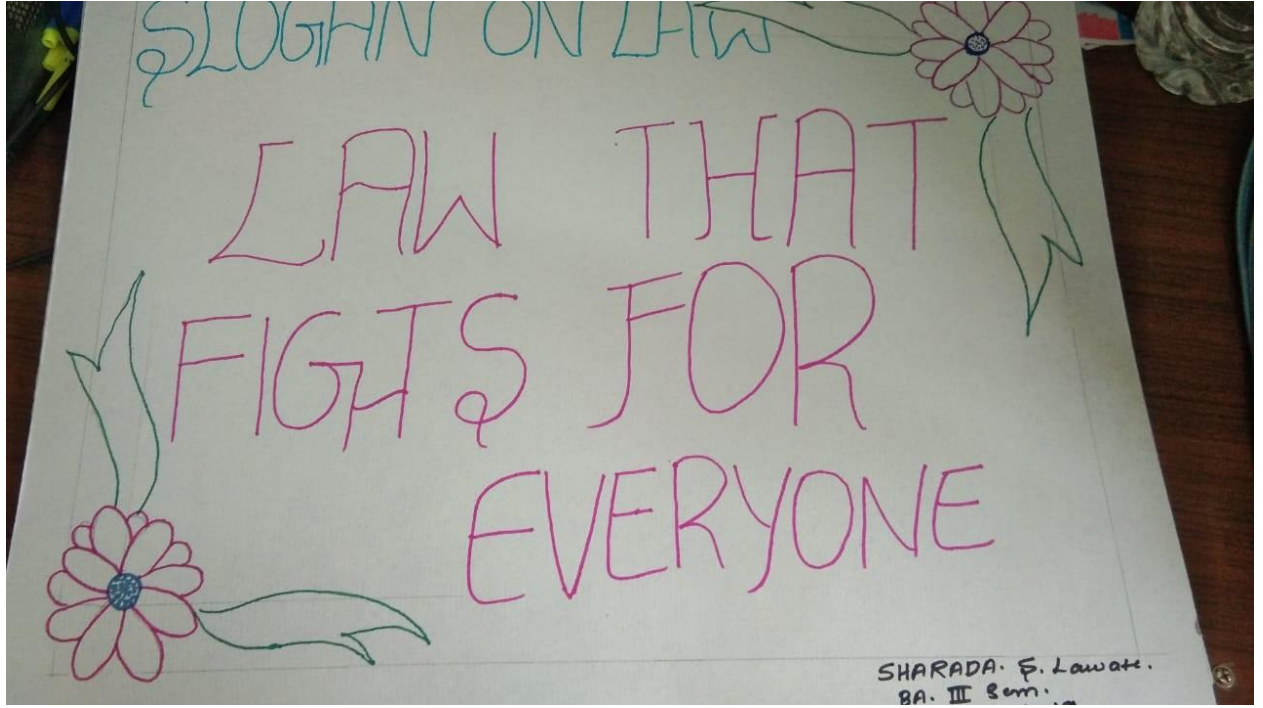 SLOGAN ON LAW
LAW THAT
FIGHTS FOR
EVERYONE
SHARADA. S. Lawate.
BA. III Sem.